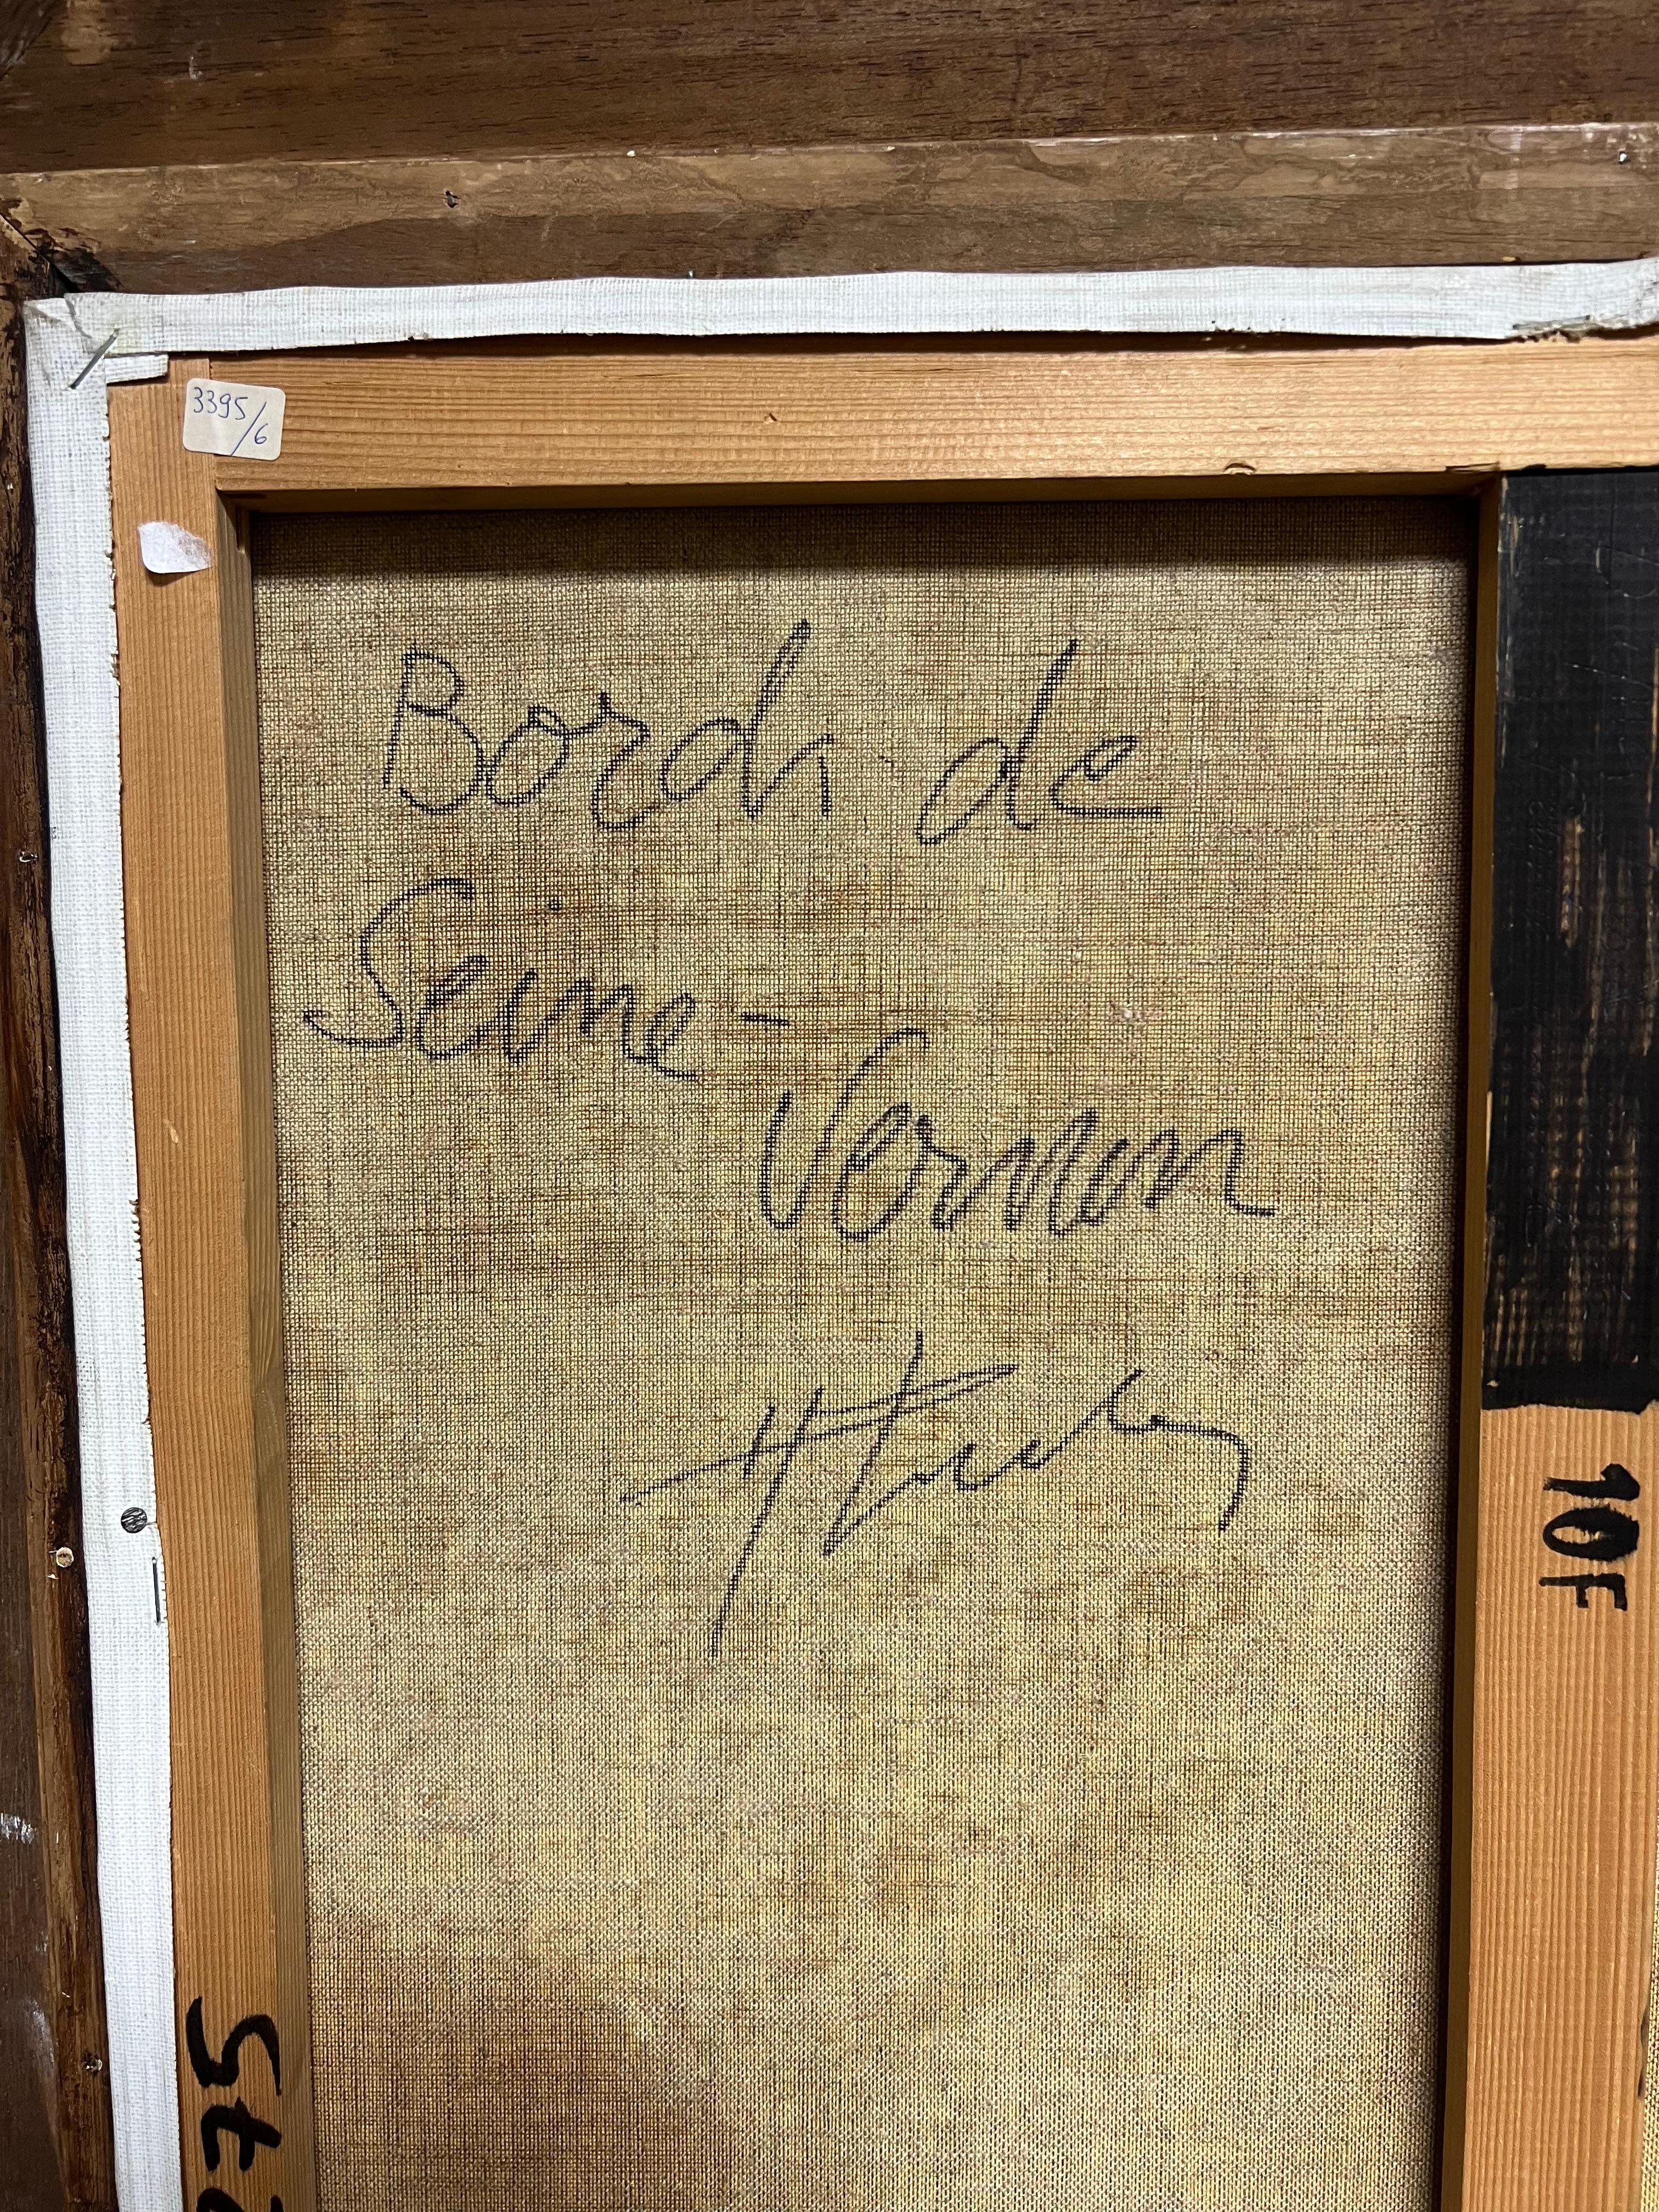 3395/6
Bords de
Seine-
Vernon
10F